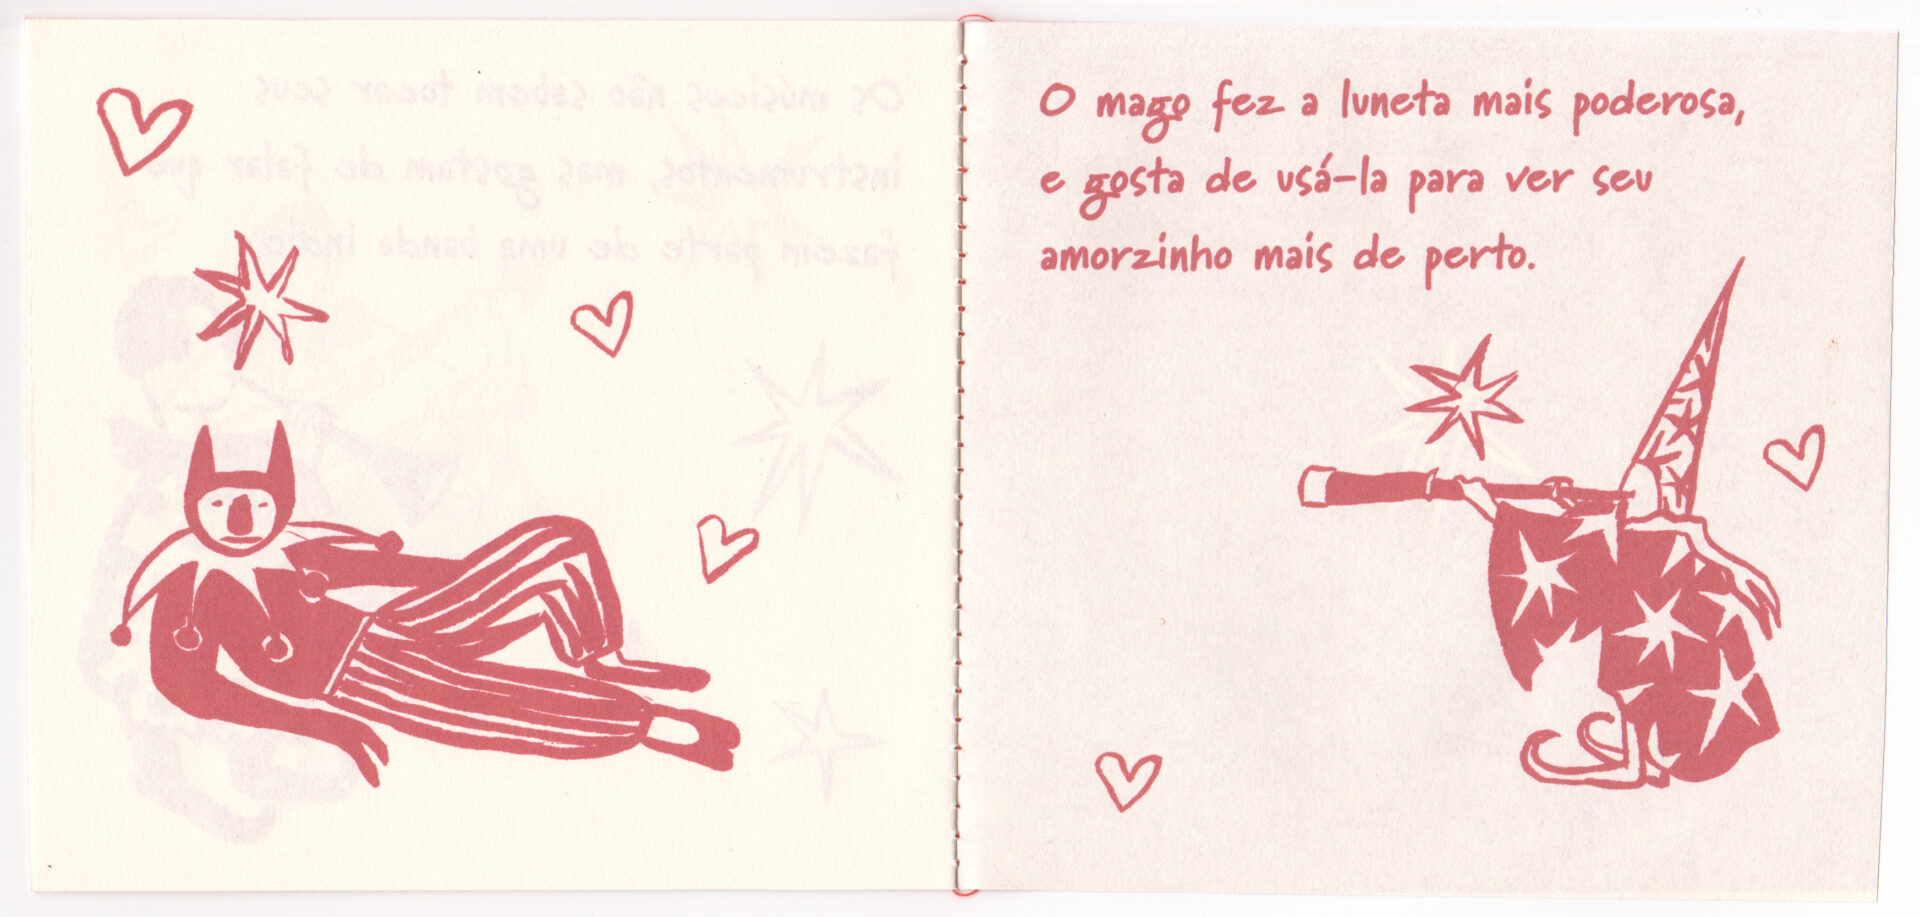 O mago fez a luneta mais poderosa,
e gosta de usá-la para ver seu
amorzinho mais de perto.